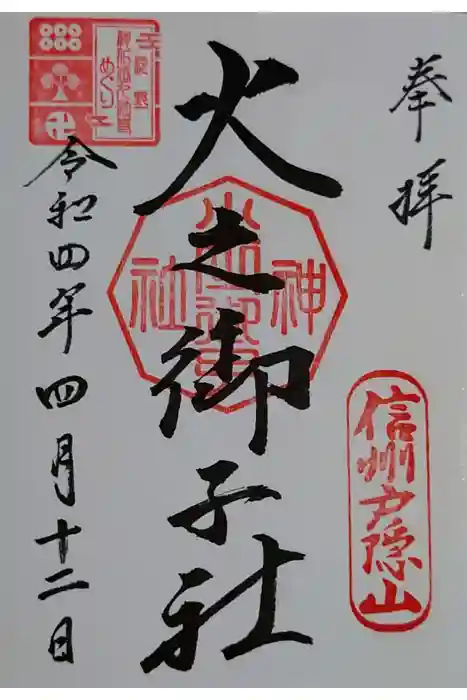 奉拝
信州戸隠山
火之御子社
神
社
めぐり
令和四年四月十二日